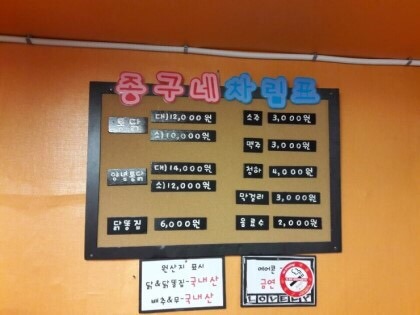 종구네차림표
통닭 대)12,000원
소)10,000원
양념통닭 대)14,000원
소)12,000원
닭똥집 6,000원
소주 3,000원
맥주 3,000원
청하 4,000원
막걸리 3,000원
음료수 2,000원
원산지 표시
닭&닭똥집-국내산
배추&무-국내산
에어콘
금연
LOVELY